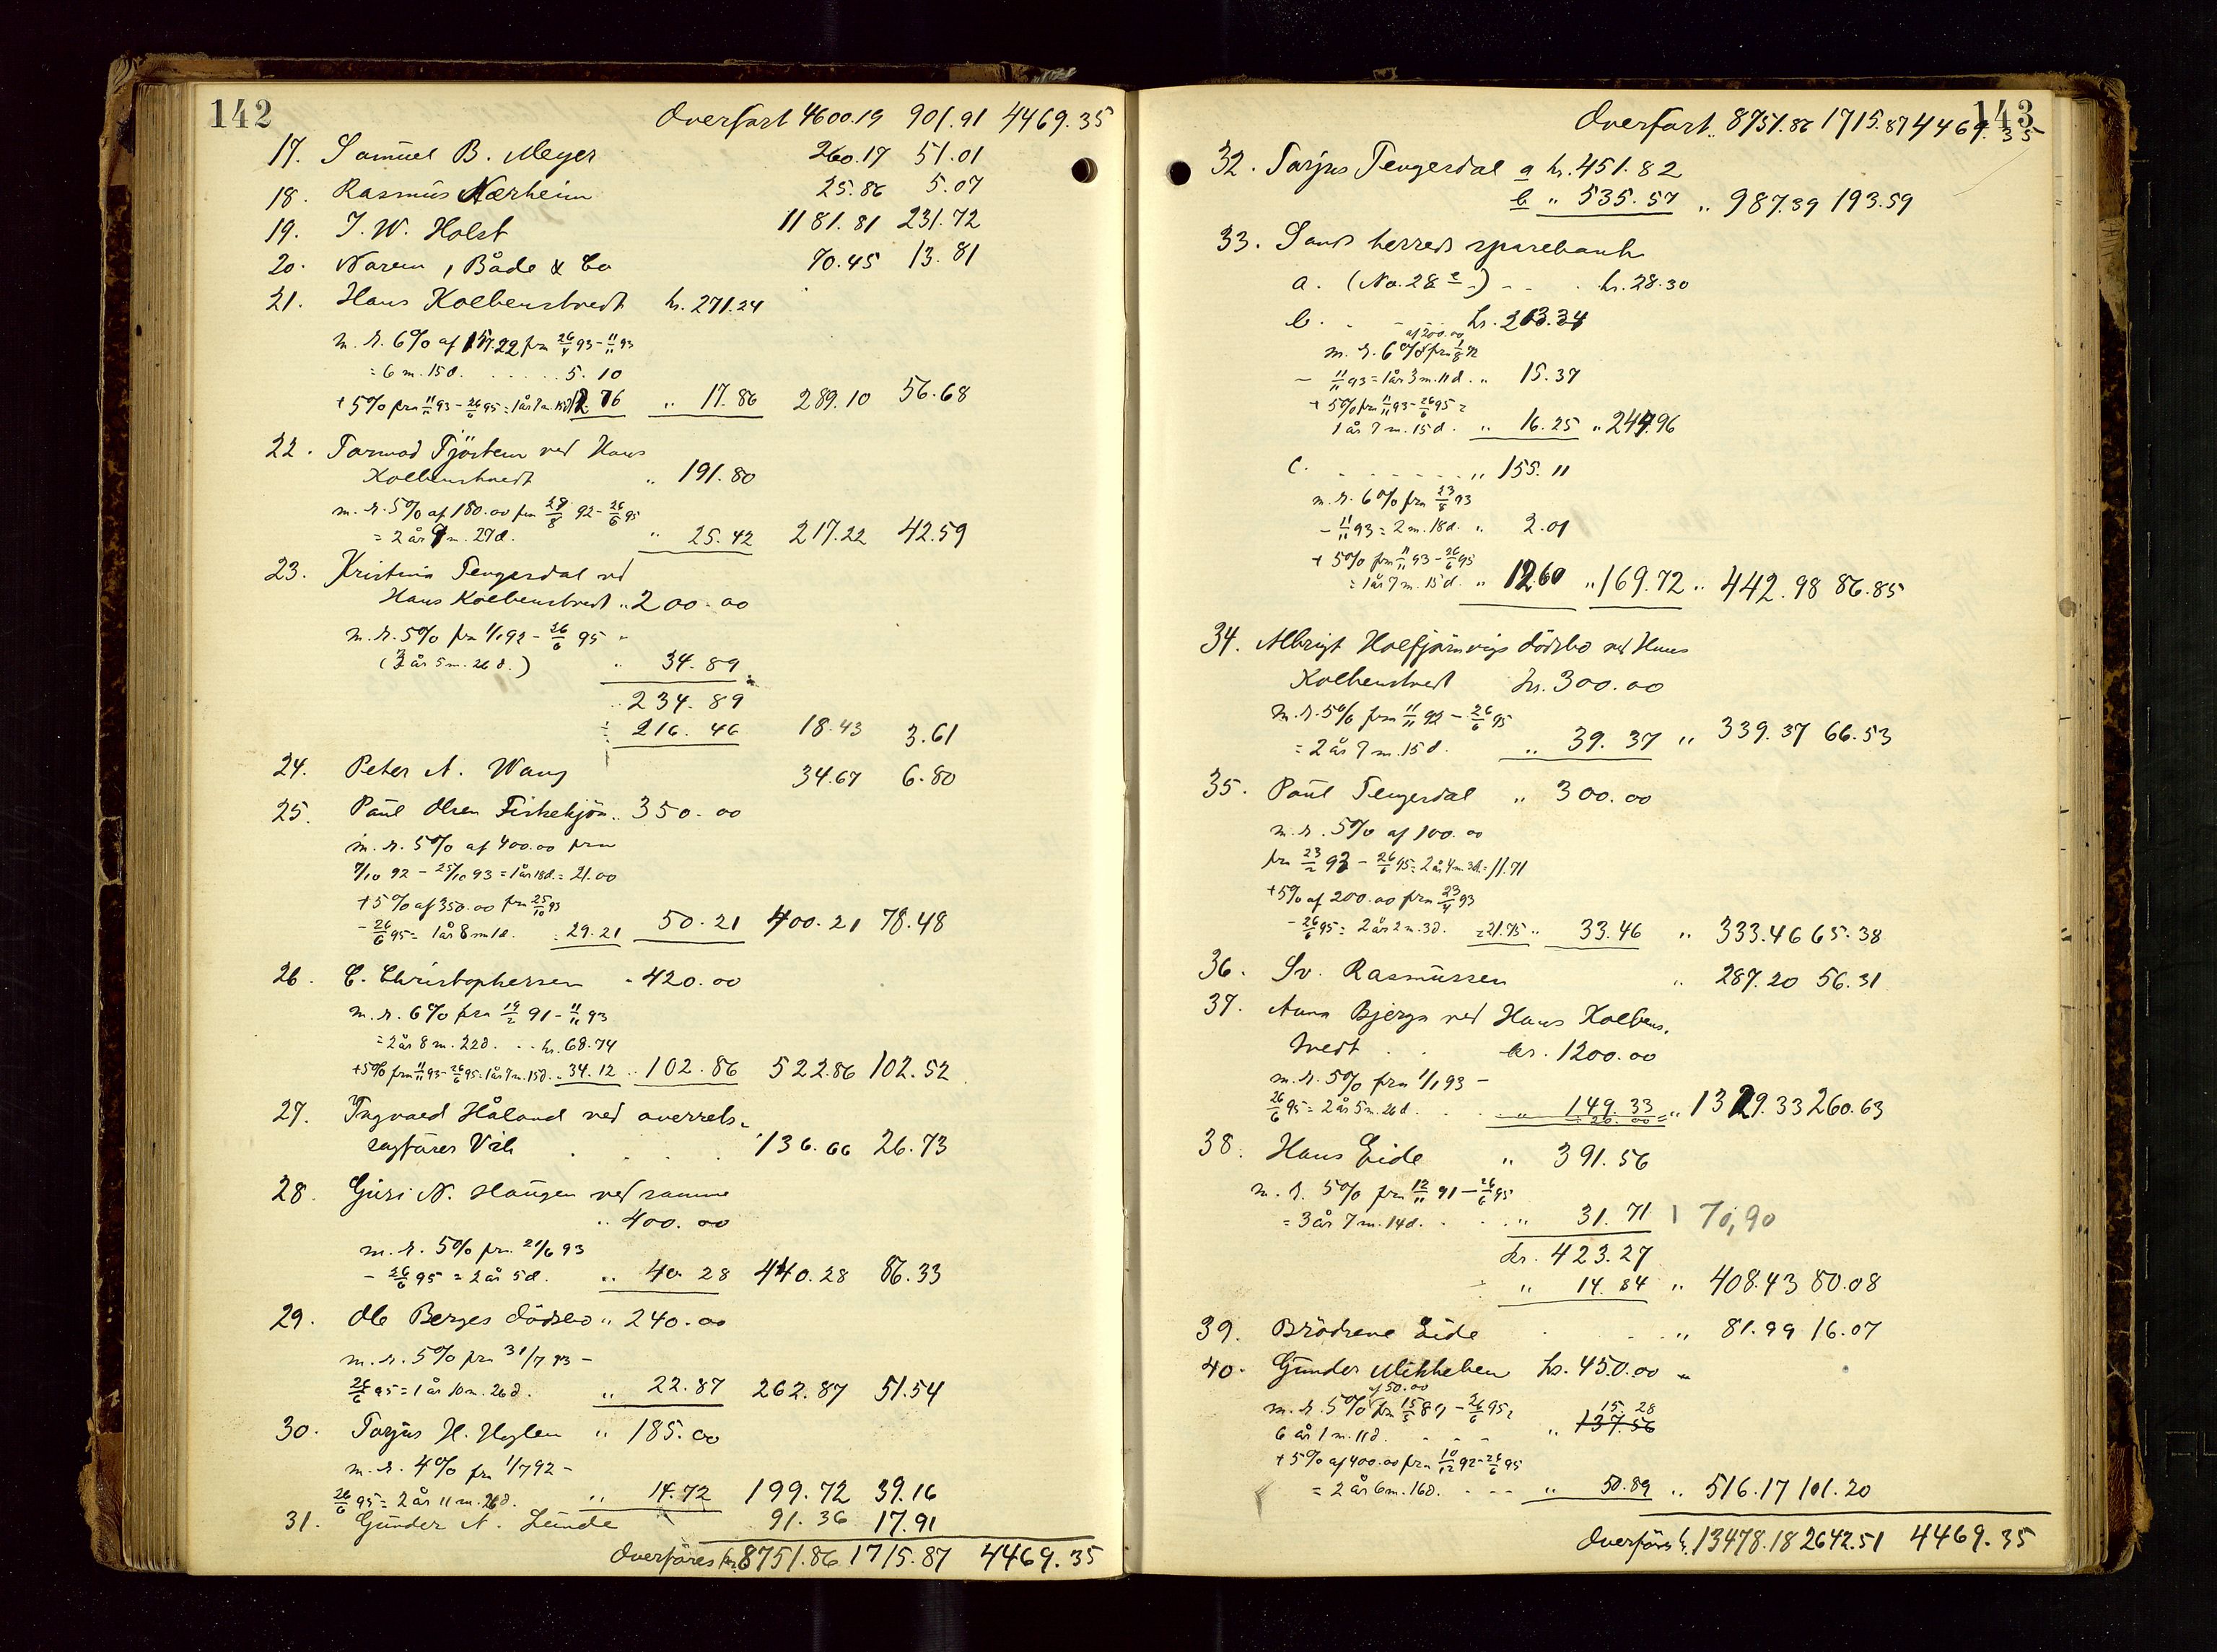 142
Overført 4600.19 901.91 4469.35
17. Samuel B. Meyer 260.17 51.01
18. Rasmus Nærheim 25.86 5.07
19. I. W. Holst 1181.81 231.72
20. Narem, Både & Co 70.45 13.81
21. Hans Kolbenstvedt kr. 271.24
m. r. 6% af 157.22 fra 26/4 93 - 11/11 93
= 6 m. 15 d. . . . . . 5.10
+ 5% fra 11/11 93 - 26/6 95 = 1 år 7 m. 15 d. 12.76 " 17.86 289.10 56.68
22. Tormod Tjöstem ved Hans
Kolbenstvedt " 191.80
m. r. 5% af 180.00 fra 29/8 92 - 26/6 95
= 2 år 9 m. 27 d. " 25.42 217.22 42.59
23. Kristina Tengesdal ved
Hans Kolbenstvedt " 200.00
m. r. 5% fra 1/1 92 - 26/6 95 =
(3 år 5 m. 26 d.) " 34.89
" 234.89
÷ 216.46 18.43 3.61
24. Peter A. Wang 34.67 6.80
25. Paul Olsen Fiskekjön " 350.00
m. r. 5% af 400.00 fra
7/10 92 - 25/10 93 = 1 år 18 d. = 21.00
+ 5% af 350.00 fra 25/10 93
- 26/6 95 = 1 år 8 m 1 d. = 29.21 50.21 400.21 78.48
26. C. Christophersen " 420.00
m. r. 6% fra 19/2 91 - 11/11 93
= 2 år 8 m. 22 d. . . kr. 68.74
+ 5% fra 11/11 93 - 26/6 95 = 1 år 7 m. 15 d. " 34.12 " 102.86 522.86 102.52
27. Ingvald Håland ved overrets-
sagfører Vik . . . . 136.66 26.73
28. Guri N. Haugen ved samme
" 400.00
m. r. 5% fra 21/6 93
- 26/6 95 = 2 år 5 d. " 40.28 440.28 86.33
29. Ole Berges dödsbo " 240.00
m. r. 5% fra 31/7 93 -
26/6 95 = 1 år 10 m. 26 d. " 22.87 262.87 51.54
30. Torjus H. Hylen " 185.00
m. r. 4% fra 1/7 92 -
26/6 95 = 2 år 11 m. 26 d. " 14.72 199.72 39.16
31. Gunder A. Lunde 91.36 17.91
Overføres kr. 8751.86 1715.87 4469.35
143
Overført " 8751.86 1715.87 4469.35
32. Torjus Tengesdal a kr. 451.82
b " 535.57 " 987.39 193.59
33. Sands herreds sparebank
a. (No. 28 ) - - . kr. 28.30
b. . - - . kr. 213.34
af 200.00
m. r. 6% fra 1/8 92
- 11/11 93 = 1 år 3 m. 11 d. " 15.37
+ 5% fra 11/11 93 - 26/6 95 =
1 år 7 m. 15 d. " 16.25 " 244.96
c. . . . . . . . " 155.11
m. r. 6% fra 23/8 93
- 11/11 93 = 2 m. 18 d. " 2.01
+ 5% fra 11/11 93 - 26/6 95
= 1 år 7 m. 15 d. " 12.60 " 169.72 " 442.98 86.85
34. Albrigt dödsbo ved Hans
Kolbenstvedt kr. 300.00
m. r. 5% fra 11/11 92 - 26/6 95
= 2 år 7 m. 15 d. " 39.37 " 339.37 66.53
35. Paul Tengesdal " 300.00
m. r. 5% af 100.00
fra 23/2 93 - 26/6 95 = 2 år 4 m. 3 d. = 11.71
+ 5% af 200.00 fra 23/4 93
- 26/6 95 = 2 år 2 m. 3 d. = 21.75 " 33.46 " 333.46 65.38
36. Sv. Rasmussen " 287.20 56.31
37. Anna Bjerga ved Hans Kolben-
stvedt . . kr. 1200.00
m. r. 5% fra 1/1 93 -
26/6 95 = 2 år 5 m. 26 d. . . " 149.33 " 1329.33 260.63
÷ 20.00 =
38. Hans Eide " 391.56
m. r. 5% fra 12/11 91 - 26/6 95
= 3 år 7 m. 14 d. . . . " 31.71 70,90
kr. 423.27
÷ " 14.84 " 408.43 80.08
39. Brödrene Eide . . . " 81.99 16.07
40. Gunder Mikkelsen kr. 450.00
af 50.00
m. r. 5% fra 15/5 89 - 26/6 95 = 15.28
6 år 1 m. 11 d. - - - " 137.56
+ 5% af 400.00 fra 10/12 92 - 26/6 95
= 2 år 6 m. 16 d. . - - " 50.89 " 516.17 101.20
Overføres kr. 13478.18 2642.51 4469.35